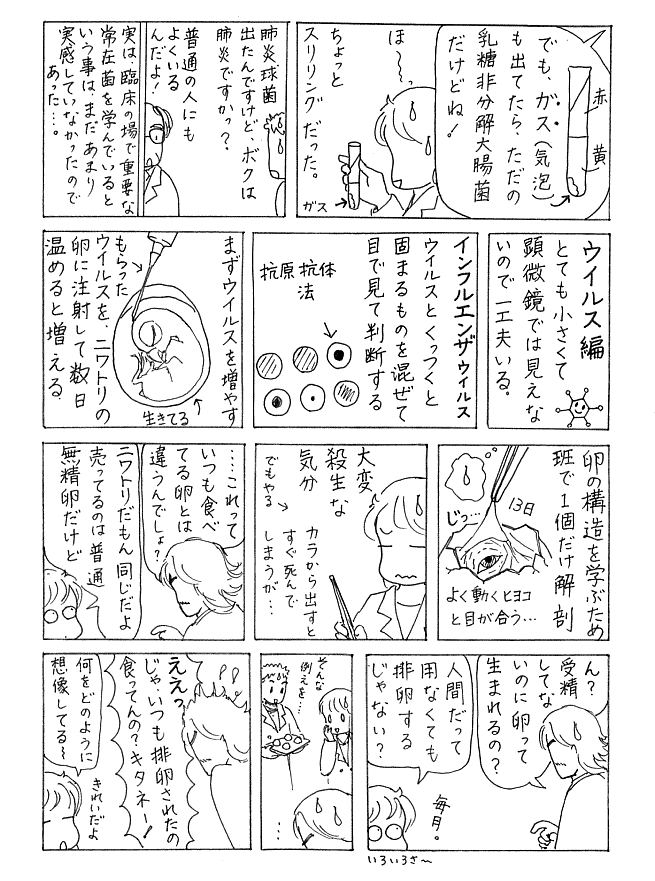 でも、ガス(気泡)
も出てたら、ただの
乳糖非分解大腸菌
だけどね!
赤
黄
ほ〜っ
ちょっと
スリリングだった。
ガス
肺炎球菌
出たんですけど、ボクは
肺炎ですかっ?
普通の人にも
よくいる
んだよ!
実は、臨床の場で重要な
常在菌を学んでいると
いう事は、まだあまり
実感していなかったので
あった…。
ウイルス編
とても小さくて
顕微鏡では見えな
いので一工夫いる。
インフルエンザウィルス
ウイルスとくっつくと
固まるものを混ぜて
目で見て判断する
抗原抗体
法
まずウイルスを増やす
もらった
ウイルスを、ニワトリの
卵に注射して数日
温めると増える。
生きてる
卵の構造を学ぶため
班で1個だけ解剖
13日
じっ…
よく動くヒヨコ
と目が合う…
大変
殺生な
気分
でもやる
カラから出すと
すぐ死んで
しまうが…
…これって
いつも食べ
てる卵とは
違うんでしょ?
ニワトリだもん同じだよ
売ってるのは普通
無精卵だけど
ん?
受精
してな
いのに卵って
生まれるの?
人間だって
用なくても
排卵する
じゃない?
毎月。
いろいろさ〜
そんな
例えを…
…
ええっ
じゃ、いつも排卵されたの
食ってんの?キタネー!
何をどのように
想像してる〜
きれいだよ